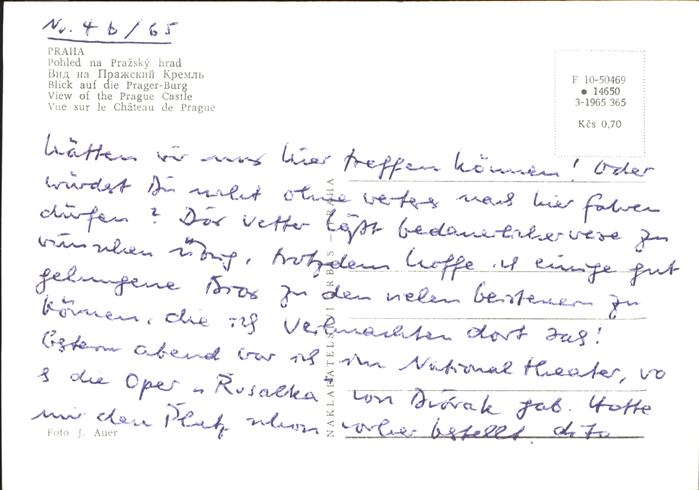 Nr. 4 b / 65
PRAHA
Pohled na Pražský hrad
Вид на Пражский Кремль
Blick auf die Prager-Burg
View of the Prague Castle
Vue sur le Château de Prague
F 10-50469
● 14650
3-1965 365
Kčs 0,70
hätten wir uns hier treffen können! Oder
würdest Du nicht ohne weiteres nach hier fahren
dürfen? Das Wetter läßt bedauerlicherweise zu
wünschen übrig, trotzdem hoffe ich einige gut
gelungene Dias zu den vielen beisteuern zu
können, die ich Weihnachten dort sah!
Gestern abend war ich im Nationaltheater, wo
s die Oper „Rusalka" von Dvórak gab. Hatte
mir den Platz schon vorher bestellt.
Foto J. Auer